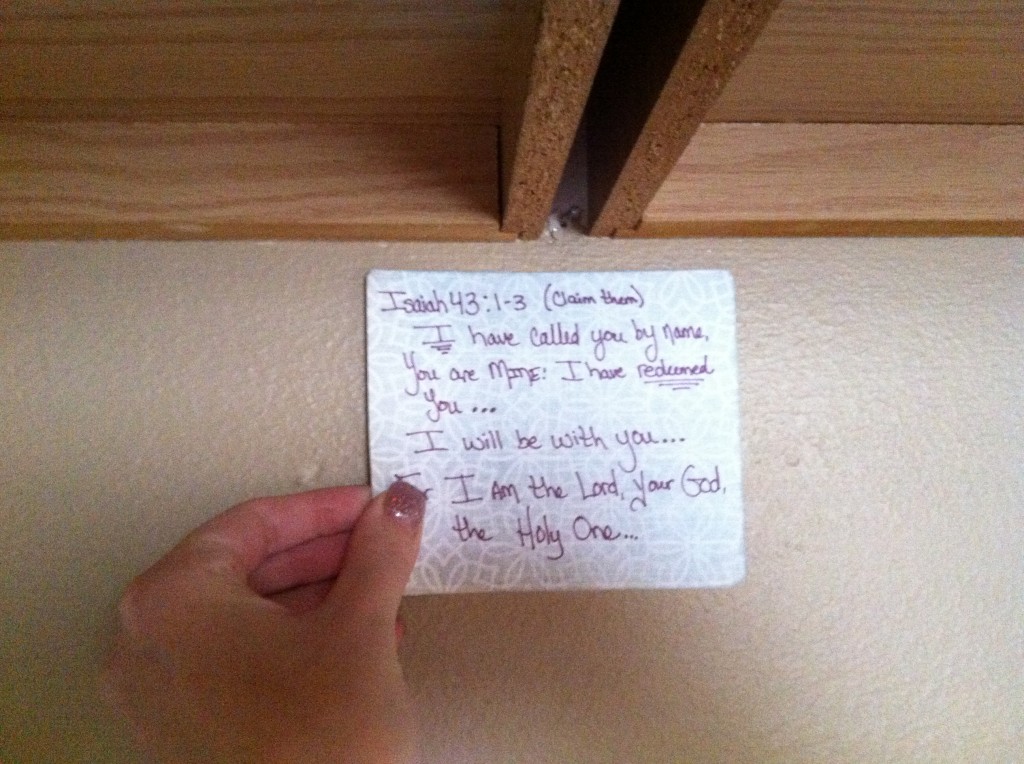 Isaiah 43:1-3 (Claim them)
I have called you by name,
You are MINE: I have redeemed
you...
I will be with you...
For I Am the Lord, your God,
the Holy One...